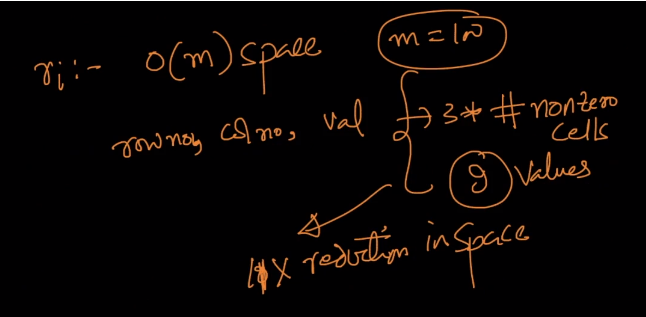 ri :- O(m) space
m = 100
row no, col no, val → 3 * # nonzero
cells
9 values
11X reduction in space